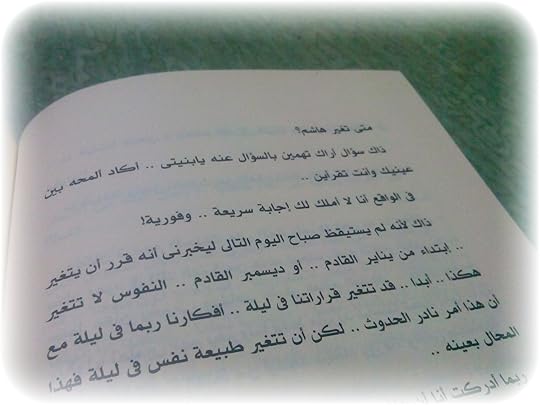 متى تغير هاشم؟
ذاك سؤال أراك تهمين بالسؤال عنه يابنيتى .. أكاد ألمحه بين
عينيك وأنت تقرأين ..
فى الواقع أنا لا أملك لك إجابة سريعة .. وفورية!
ذاك لأنه لم يستيقظ صباح اليوم التالى ليخبرنى أنه قرر أن يتغير
.. إبتداء من يناير القادم .. أو ديسمبر القادم .. النفوس لا تتغير
هكذا .. أبدا .. قد تتغير قراراتنا فى ليلة .. أفكارنا ربما فى ليلة مع
أن هذا أمر نادر الحدوث .. لكن أن تتغير طبيعة نفس فى ليلة فهذا
المحال بعينه ..
ربما أدركت أنا